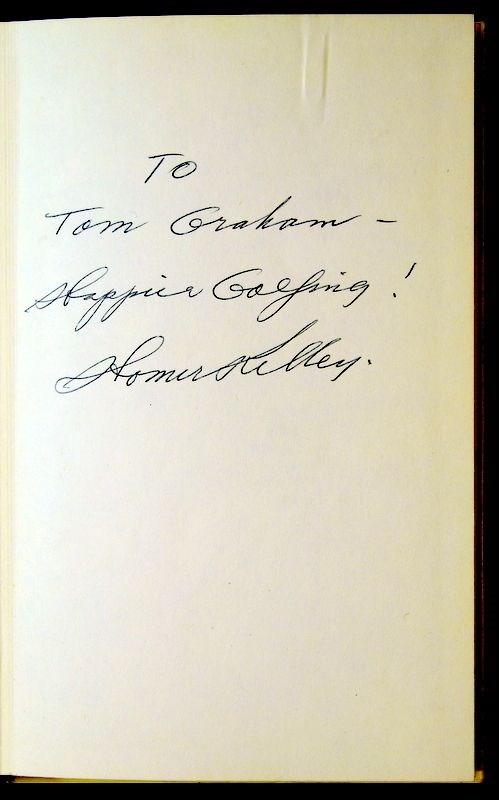 To
Tom Graham -
Happier Golfing!
Homer Kelley.